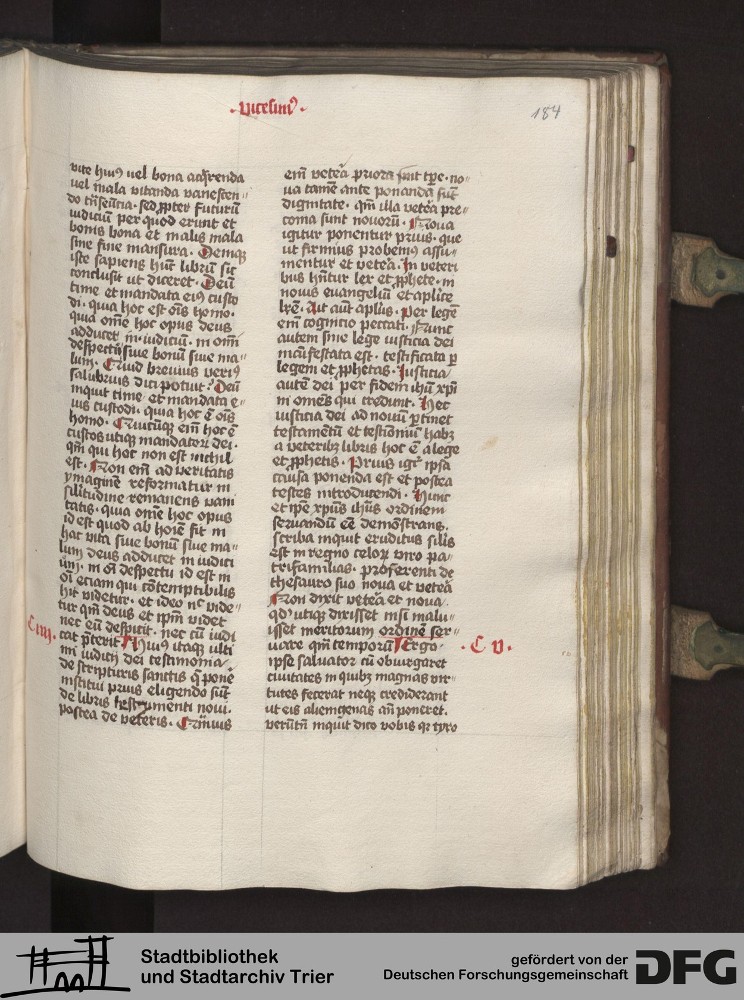 ·vicesimꝰ·
184
vite huiꝰ uel bona acq̇renda
uel mala vitanda vanesten⸗
do tn̄seūtia · sed ꝓpter futurū
iudiciū per quod erunt et
bonis bona et malis mala
sine fine mansura · Deniqꝫ
iste sapiens hūc librū sic
conclusit ut diceret · Deū
time et mandata eiꝰ custo
di · quia hoc est oīs homo ·
quia omē hoc opus deus
adducet in iudiciū · in omī
despectū siue bonū siue ma⸗
lum · Quid breuius veriꝰ
salubrius dici potuit · Deū
inquit time et mandata e⸗
ius custodi · quia hoc ē oīs
homo · Quicūqꝫ eīm hoc ē
custos utiqꝫ mandatorū dei ·
qm̄ qui hoc non est nichil
est · Non eīm ad veritatis
ymaginē reformatur in
similitudine remanens vani
tatis · quia omē hoc opus
id est quod ab hoīe fit in
hac vita siue bonū siue ma⸗
lum deus adducet in iudici
ū · in oī despectu id est in
oī eciam qui cōtemptibilis
hic videtur · et ideo nc̄ vide⸗
tur qm̄ deus et ipm̄ videt
nec eū despicit · nec cū iudi
C iiij · cat p̄terit Huiꝰ itaqꝫ ulti
mi iudicij dei testimonia
de scripturis sanctis q̄ ponē
institui prius eligendo sūt
de libris testrumenti noui ·
postea de veteris · Quīuis
eīm vetea priora sint tp̄e · no⸗
ua tamē ante ponenda sūt
dignitate · qm̄ illa vetea pre⸗
conia sunt nouorū · Noua
igitur ponentur prius · que
ut firmius probemꝰ assu⸗
mentur et vetea · In veteri
bus hn̄tur lex et ꝓphete · in
nouis euangeliū et aplice
lrē · Ait aūt aplus · Per legē
eīm cognitio peccati · Nunc
autem sine lege iusticia dei
manifestata est · testificata ꝑ
legem et ꝓphetas · Iusticia
autē dei per fidem ihū xp̄i
in omēs qui credunt · Hec
iusticia dei ad nouū ꝑtinet
testamētū et testioniū habꝫ
a veteribꝫ libris hoc ē a lege
et ꝓphetis · Prius igr̄ ipsa
causa ponenda est et postea
testes introducendi · Hunc
et ipē xpūs ihūs ordinem
seruandū eē demōstrans ·
scriba inquit eruditus silīs
est in regno celoꝝ viro pa⸗
trifamilias · proferenti de
thesauro suo noua et vetea
Non dixit vetea et noua ·
qd̓ utiqꝫ dixisset nisi malu⸗
isset meritorum ordinē ser⸗
uare qm̄ temporū Ergo · · C v ·
ipse saluator cū obiurgaret
ciuitates in quibꝫ magnas vir⸗
tutes fecerat neqꝫ crediderant
ut eis alienigenas an̄poneret ·
verūtn̄ inquit dico vobis qꝛ tyro
Stadtbibliothek
und Stadtarchiv Trier
gefördert von der
Deutschen Forschungsgemeinschaft
DFG